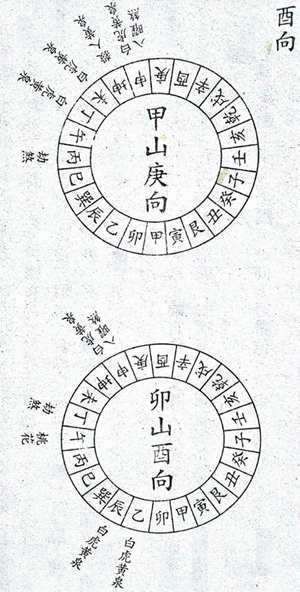 酉向
甲山庚向
庚酉辛戌乾亥壬子癸丑艮寅甲卯乙辰巽巳丙午丁未坤申
八曜煞
白虎黃泉
人黃泉
白虎黃泉
白虎黃泉
劫煞
卯山酉向
酉辛戌乾亥壬子癸丑艮寅甲卯乙辰巽巳丙午丁未坤申庚
八曜煞
白虎黃泉
劫煞
桃花
白虎黃泉
白虎黃泉